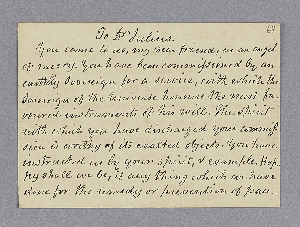 To Dr Julius.
You come to us, my dear friend, as an angel
of mercy. You have been commissioned by an
earthly Sovereign for a service, with which the
Sovereign of the Universe honours the most fa
voured instruments of his will. The spirit
with which you have discharged your commis
sion is worthy of its exalted object. You have
instructed us by your spirit, & example. Hap
py shall we be, if any thing which we have
done for the remedy or prevention of